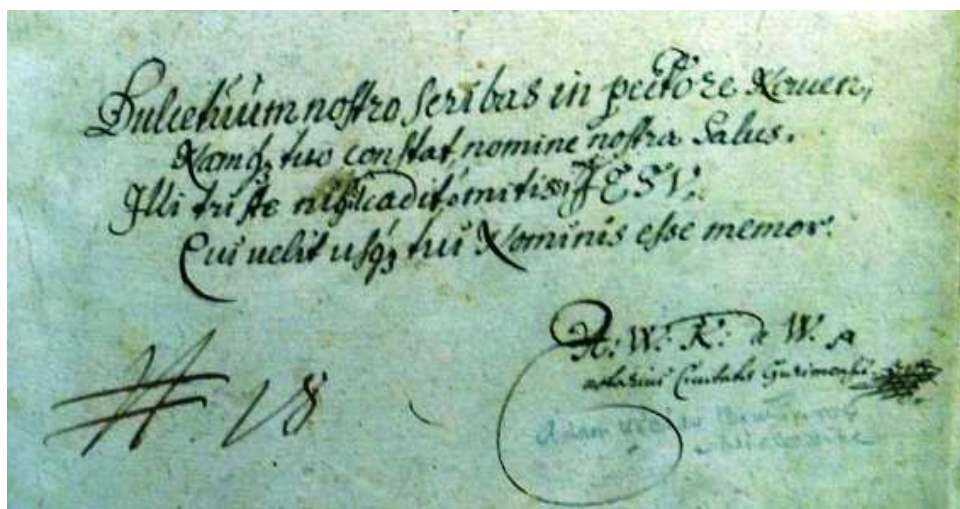 Dulce tuum nostro scribas in pectore Nomen,
Namq; tuo constat nomine nostra Salus.
Illi triste nihil cadit, o mitiss: JESV.
Cui uelit usq; tui Nominis esse memor.
A: W: K: à W: A
notarius Ciuitatis Gurimensis
N. 18
Adam